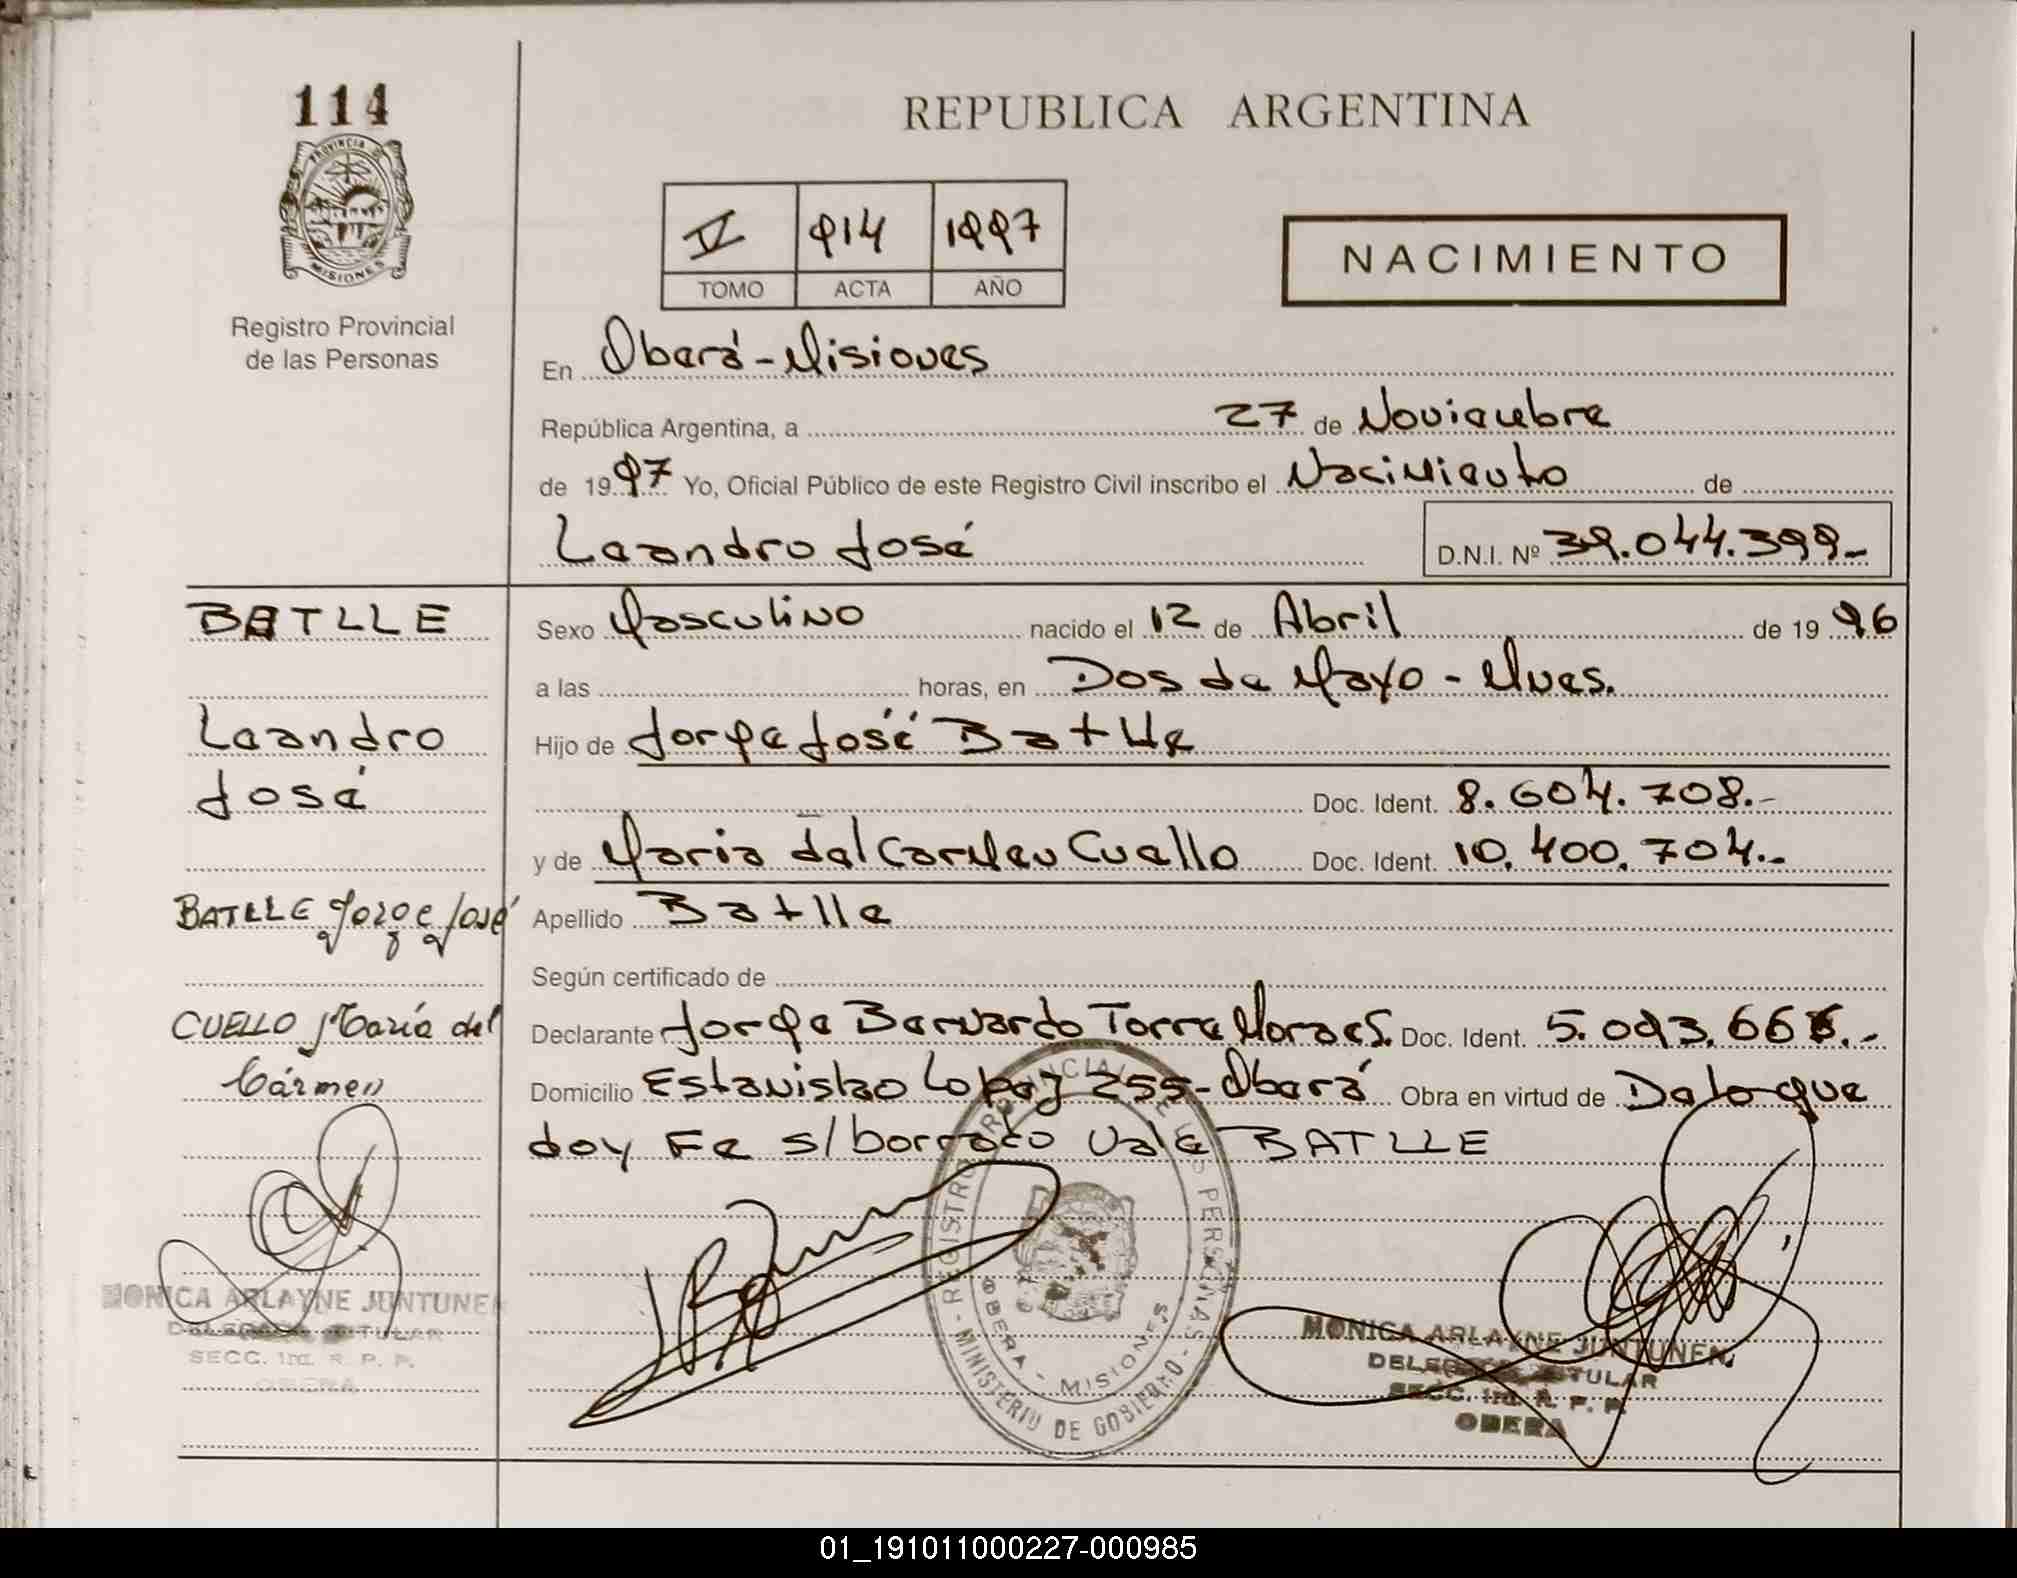 114
PROVINCIA DE
MISIONES
Registro Provincial
de las Personas
REPUBLICA ARGENTINA
IV 914 1997
TOMO ACTA AÑO
NACIMIENTO
En Oberá - Misiones
República Argentina, a 27 de Noviembre
de 1997 Yo, Oficial Público de este Registro Civil inscribo el Nacimiento de
Leandro José D.N.I. Nº 39.044.399.-
BATLLE
Leandro
José
BATLLE Jorge José
CUELLO María del
Cármen
MONICA ARLAYNE JUNTUNEN
TITULAR
SECC. 1ra. R. P. P.
OBERA
Sexo Masculino nacido el 12 de Abril de 1996
a las horas, en Dos de Mayo - Mnes.
Hijo de Jorge José Batlle
Doc. Ident. 8.604.708.-
y de Maria del Carmen Cuello Doc. Ident. 10.400.704.-
Apellido Batlle
Según certificado de
Declarante Jorge Bernardo Torre Moraes. Doc. Ident. 5.093.666.-
Domicilio Estanislao Lopez 255 - Oberá Obra en virtud de De lo que
doy Fe s/borrado Vale BATLLE
REGISTRO PROVINCIAL DE LAS PERSONAS - MINISTERIO DE GOBIERNO -
OBERA - MISIONES
MONICA ARLAYNE JUNTUNEN
TITULAR
SECC. 1ra. R. P. P.
OBERA
01_191011000227-000985